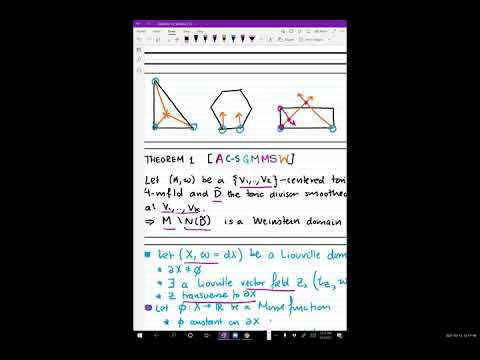 THEOREM 1 [AC-S GMMSW]
Let (M, ω) be a {V₁,..,Vₖ}-centered tori
4-mfld and D̃ the toric divisor smoothed
at V₁,..,Vₖ.
⇒ M \ N(D̃) is a Weinstein domain
Let (X, ω = dλ) be a Liouville dom
* ∂X ≠ ∅
* ∃ a Liouville vector field Z, (ιz, ω
* Z transverse to ∂X
Let φ: X → ℝ be a Morse function
* φ constant on ∂X